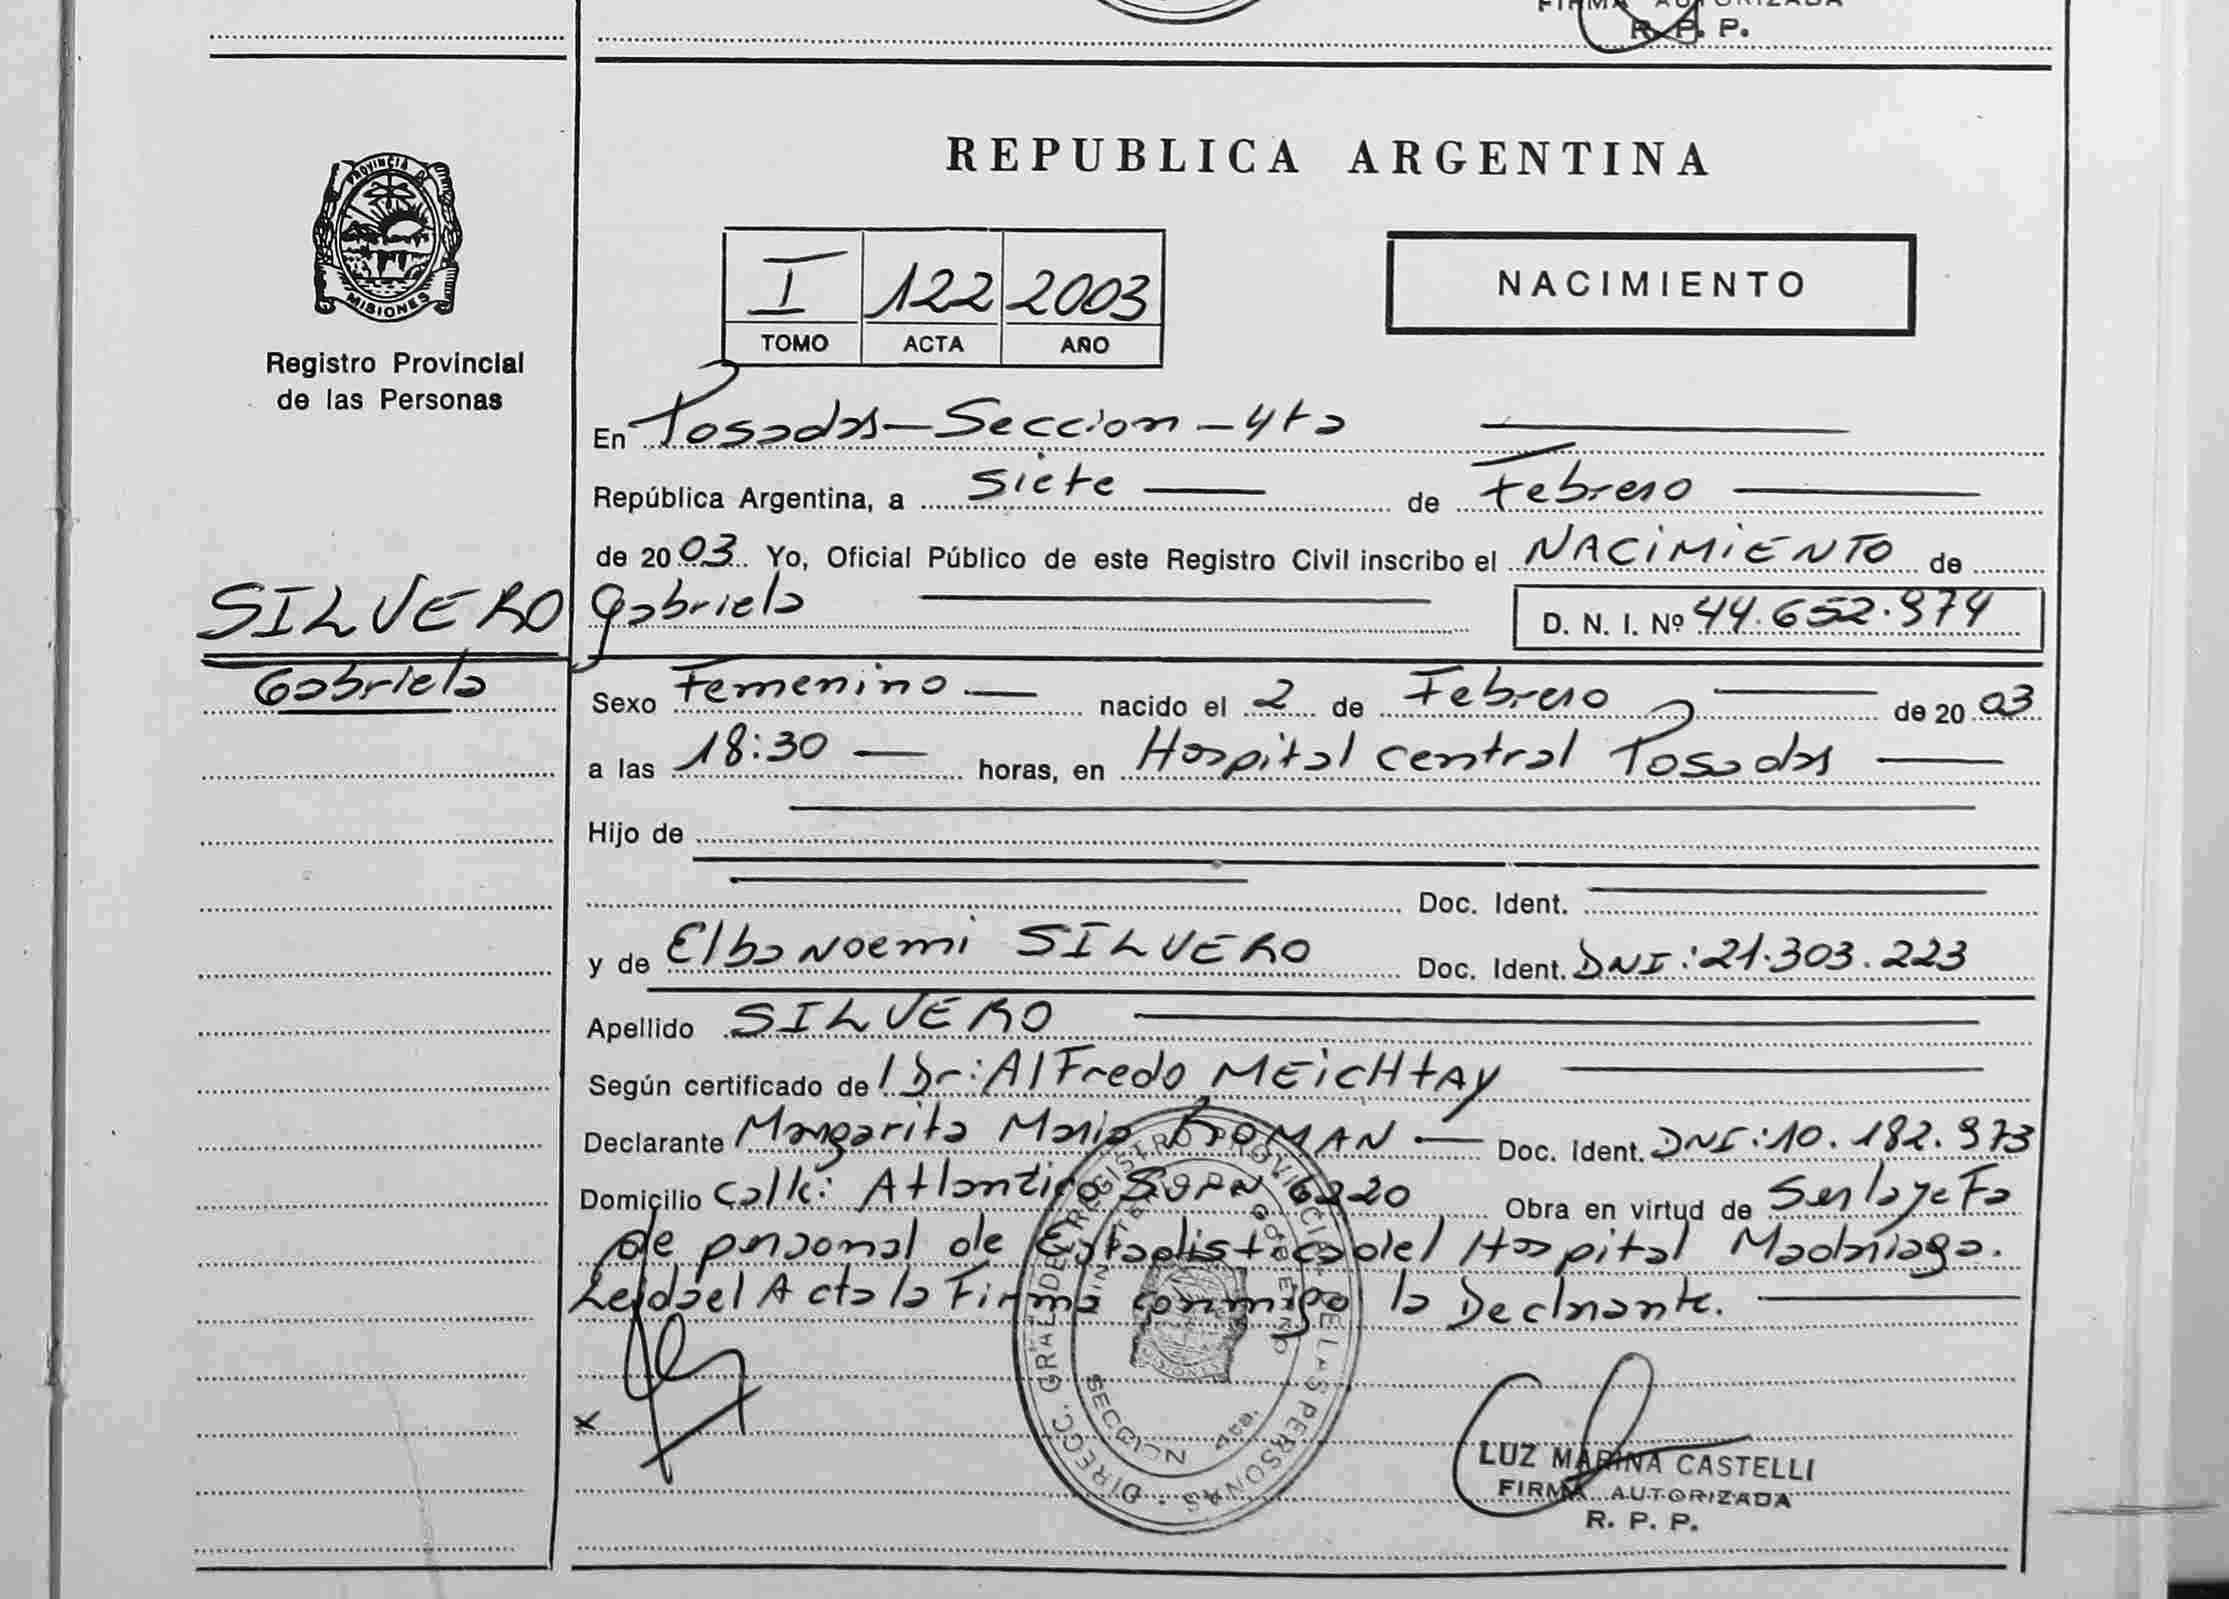 FIRMA AUTORIZADA
R. P. P.
PROVINCIA DE
MISIONES
Registro Provincial
de las Personas
REPUBLICA ARGENTINA
I 122 2003
TOMO ACTA AÑO
NACIMIENTO
En Posadas-Seccion-4ta
República Argentina, a siete de Febrero
de 2003 Yo, Oficial Público de este Registro Civil inscribo el NACIMIENTO de
SILVERO
Gabriela
Gabriela D. N. I. Nº 44.652.974
Sexo Femenino nacido el 2 de Febrero de 2003
a las 18:30 horas, en Hospital central Posadas
Hijo de
Doc. Ident.
y de Elba Noemi SILVERO Doc. Ident. DNI: 21.303.223
Apellido SILVERO
Según certificado de Dr: Alfredo MEicHtAy
Declarante Margarita Maria ROMAN Doc. Ident. DNI: 10.182.973
Domicilio calle: Atlantico 6220 Obra en virtud de
de personal de Estadistica del Hospital Madariaga.
Leida el Acta la Firma conmigo la Declarante.
DIRECC. GRAL. DE REGISTRO PROVINCIAL DE LAS PERSONAS
SECCION 4ta.
LUZ MARINA CASTELLI
FIRMA AUTORIZADA
R. P. P.